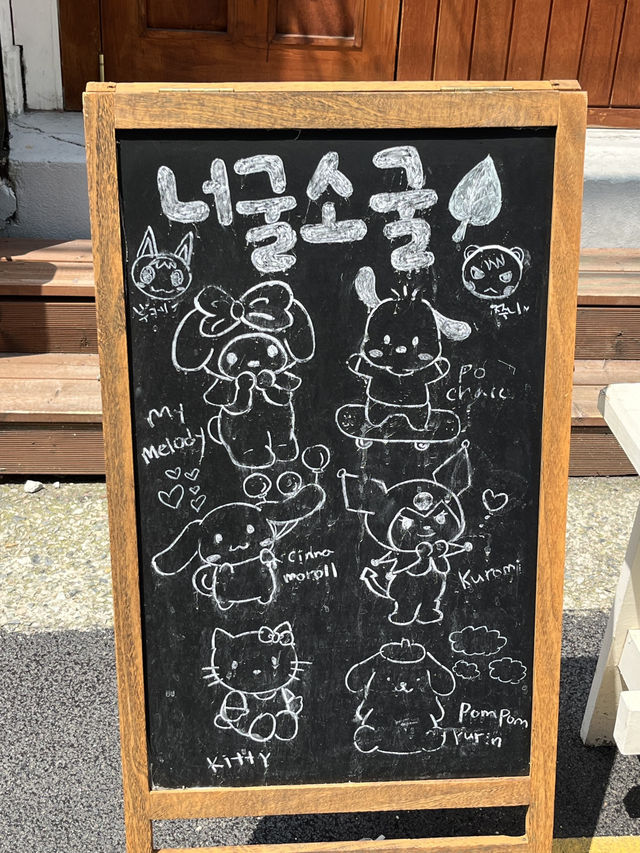 너굴소굴
My
Melody
Po
chaic
Cinna
moroll
Kuromi
Kitty
PomPom
Purin